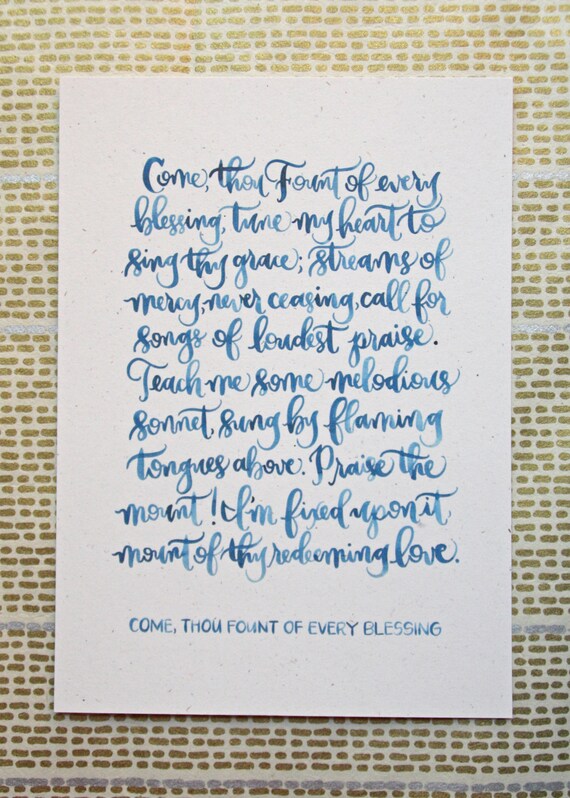 Come, thou Fount of every
blessing, tune my heart to
sing thy grace; streams of
mercy, never ceasing, call for
songs of loudest praise.
Teach me some melodious
sonnet, sung by flaming
tongues above. Praise the
mount! I'm fixed upon it,
mount of thy redeeming love.
COME, THOU FOUNT OF EVERY BLESSING